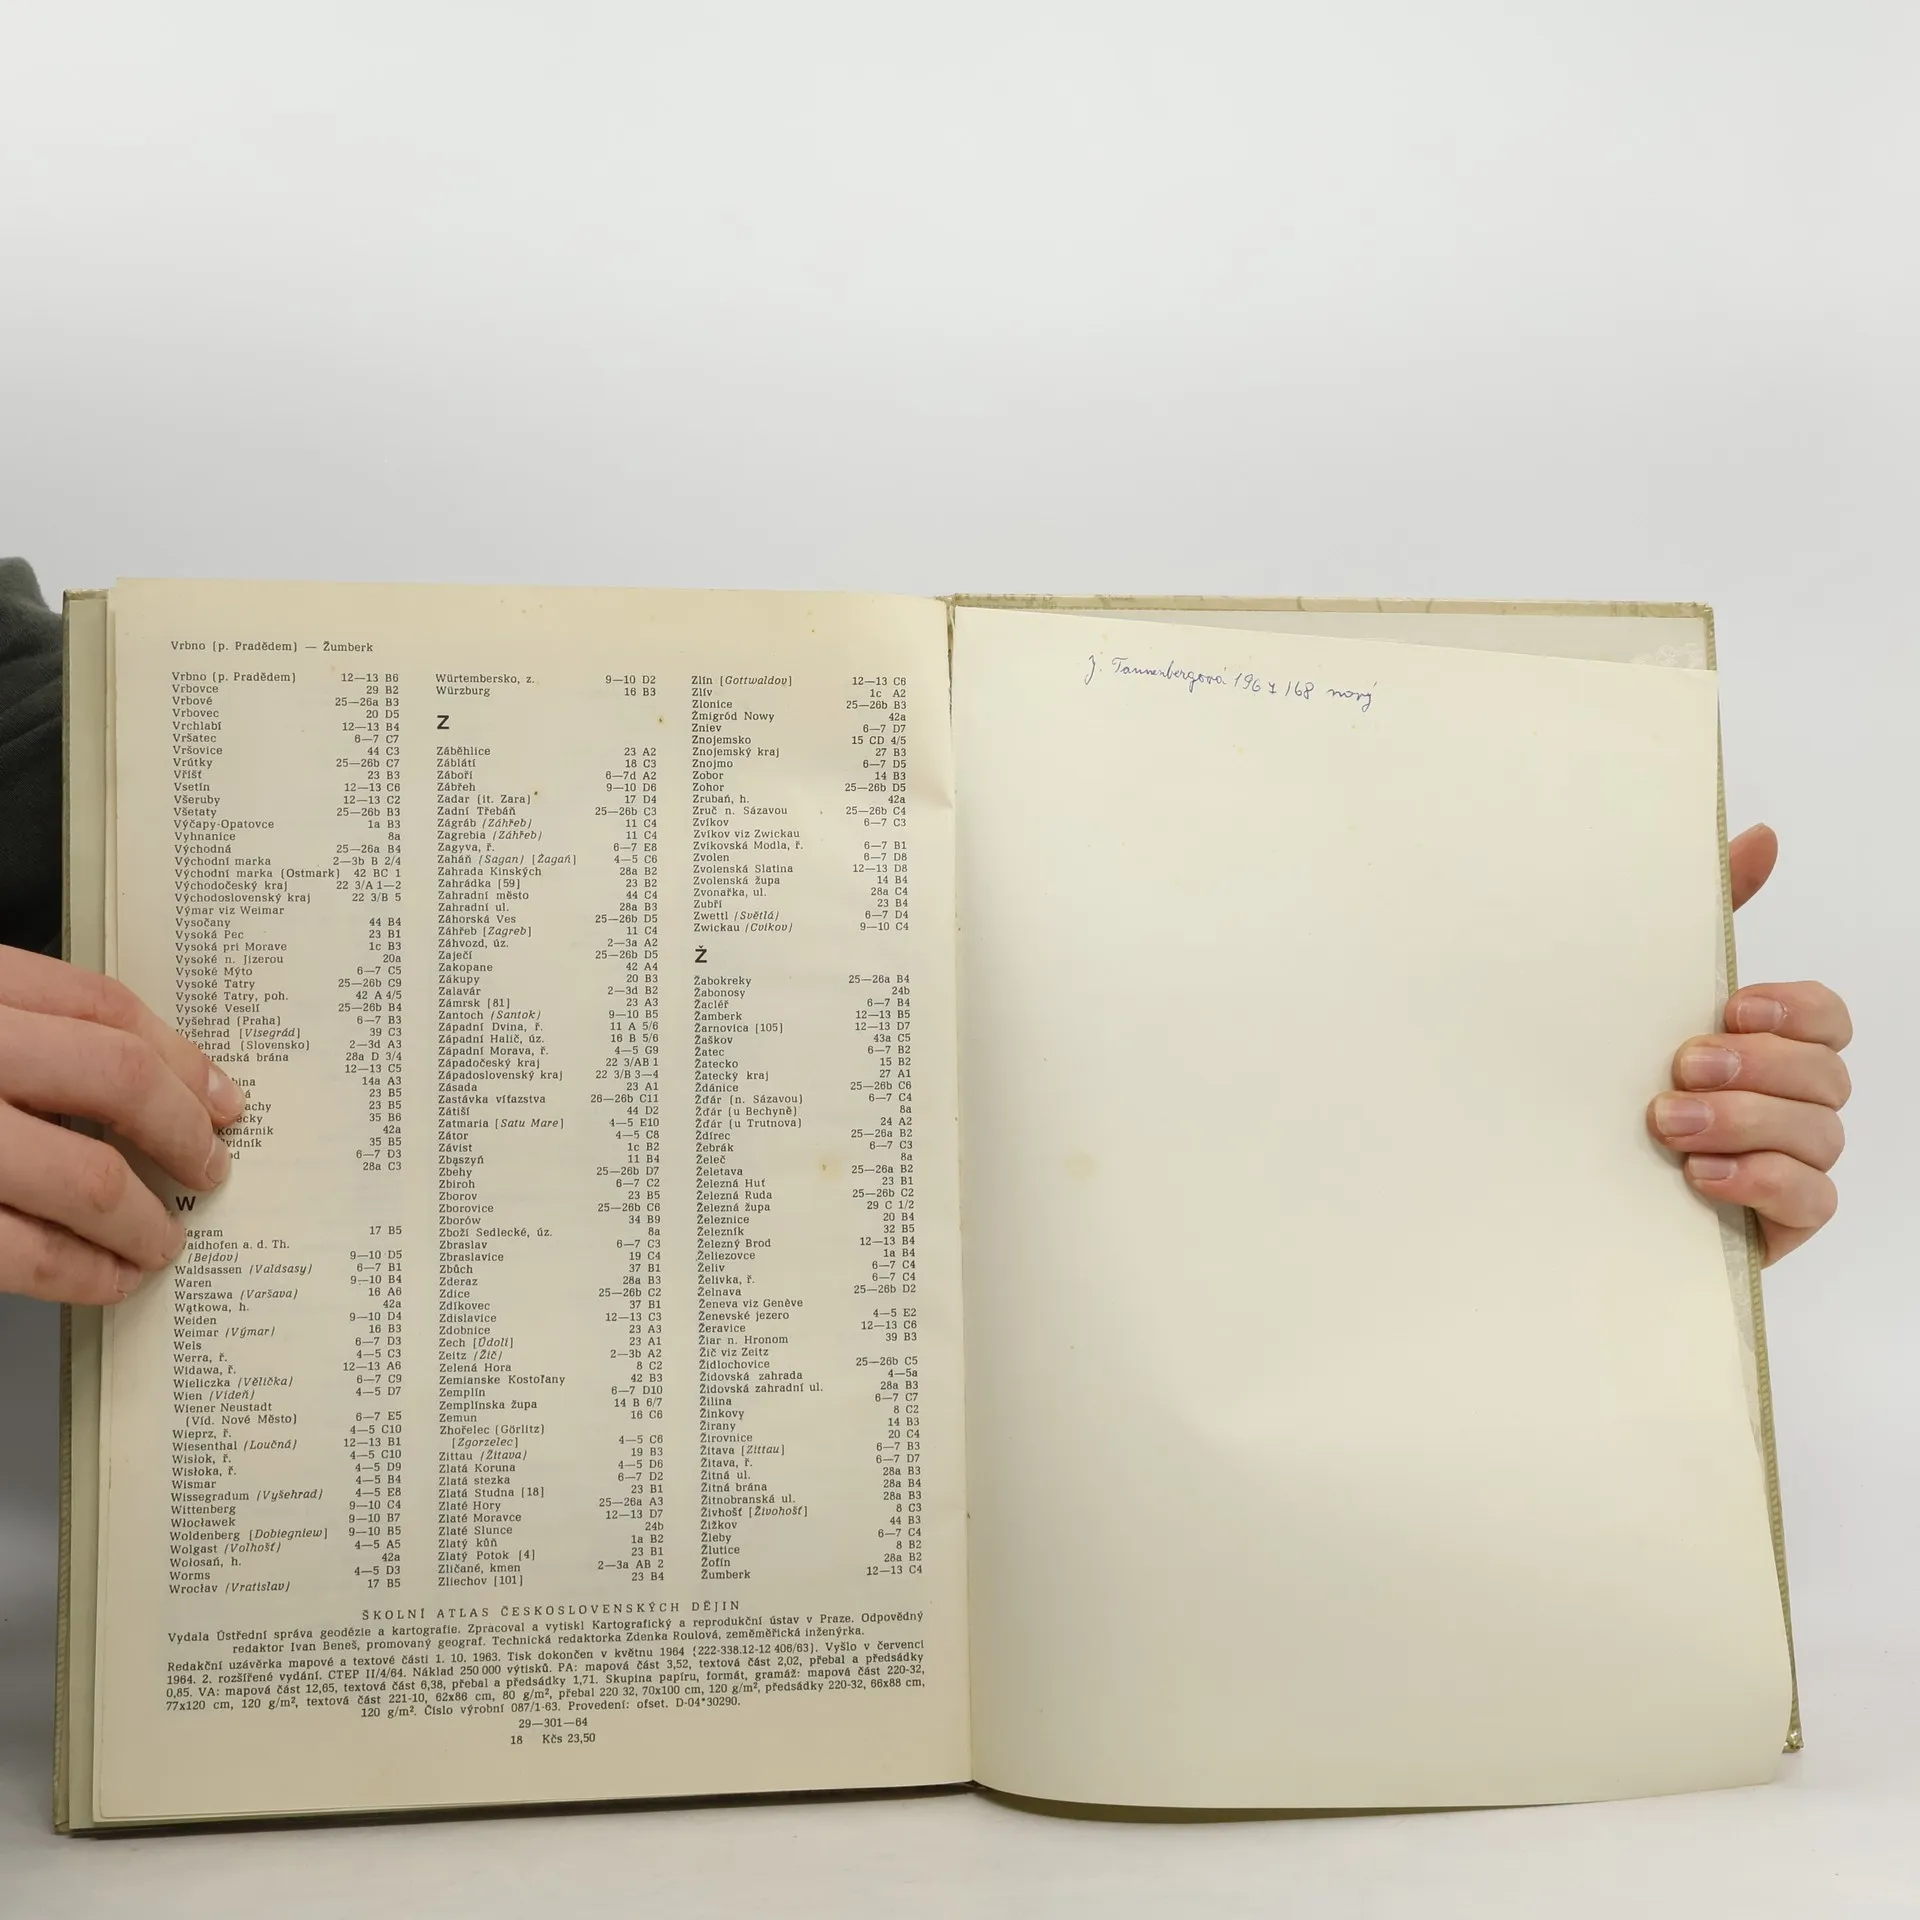 Vrbno (p. Pradědem) — Žumberk
Vrbno (p. Pradědem) 12—13 B6
Vrbovce 29 B2
Vrbové 25—26a B3
Vrbovec 20 D5
Vrchlabí 12—13 B4
Vršatec 6—7 C7
Vršovice 44 C3
Vrútky 25—26b C7
Vříšť 23 B3
Vsetín 12—13 C6
Všeruby 12—13 C2
Všetaty 25—26b B3
Výčapy-Opatovce 1a B3
Vyhnanice 8a
Východná 25—26a B4
Východní marka 2—3b B 2/4
Východní marka (Ostmark) 42 BC 1
Východočeský kraj 22 3/A 1—2
Východoslovenský kraj 22 3/B 5
Výmar viz Weimar
Vysočany 44 B4
Vysoká Pec 23 B1
Vysoká pri Morave 1c B3
Vysoké n. Jizerou 20a
Vysoké Mýto 6—7 C5
Vysoké Tatry 25—26b C9
Vysoké Tatry, poh. 42 A 4/5
Vysoké Veselí 25—26b B4
Vyšehrad [Praha] 6—7 B3
Vyšehrad [Visegrád] 39 C3
ehrad [Slovensko] 2—3d A3
hradská brána 28a D 3/4
12—13 C5
bina 14a A3
á 23 B5
achy 23 B5
ecky 35 B6
Komárnik 42a
vidník 35 B5
od 6—7 D3
28a C3
W
agram 17 B5
aidhofen a. d. Th.
(Bejdov) 9—10 D5
Waldsassen (Valdsasy) 6—7 B1
Waren 9—10 B4
Warszawa (Varšava) 16 A6
Wątkowa, h. 42a
Weiden 9—10 D4
Weimar (Výmar) 16 B3
Wels 6—7 D3
Werra, ř. 4—5 C3
Widawa, ř. 12—13 A6
Wieliczka (Vělička) 6—7 C9
Wien (Vídeň) 4—5 D7
Wiener Neustadt
[Víd. Nové Město] 6—7 E5
Wieprz, ř. 4—5 C10
Wiesenthal (Loučná) 12—13 B1
Wisłok, ř. 4—5 C10
Wisłoka, ř. 4—5 D9
Wismar 4—5 B4
Wissegradum (Vyšehrad) 4—5 E8
Wittenberg 9—10 C4
Włocławek 9—10 B7
Woldenberg [Dobiegniew] 9—10 B5
Wolgast (Volhošť) 4—5 A5
Wołosań, h. 42a
Worms 4—5 D3
Wrocław (Vratislav) 17 B5
Würtembersko, z. 9—10 D2
Würzburg 16 B3
Z
Záběhlice 23 A2
Záblátí 18 C3
Záboří 6—7d A2
Zábřeh 9—10 D6
Zadar (it. Zara) 17 D4
Zadní Třebáň 25—26b C3
Zágráb (Záhřeb) 11 C4
Zagrebia (Záhřeb) 11 C4
Zagyva, ř. 6—7 E8
Zaháň (Sagan) [Žagań] 4—5 C6
Zahrada Kinských 28a B2
Zahrádka [59] 23 B2
Zahradní město 44 C4
Zahradní ul. 28a B3
Záhorská Ves 25—26b D5
Záhřeb [Zagreb] 11 C4
Záhvozd, úz. 2—3a A2
Zaječí 25—26b D5
Zakopane 42 A4
Zákupy 20 B3
Zalavár 2—3d B2
Zámrsk [81] 23 A3
Zantoch (Santok) 9—10 B5
Západní Dvina, ř. 11 A 5/6
Západní Halič, úz. 16 B 5/6
Západní Morava, ř. 4—5 G9
Západočeský kraj 22 3/AB 1
Západoslovenský kraj 22 3/B 3—4
Zásada 23 A1
Zastávka víťazstva 26—26b C11
Zátiší 44 D2
Zatmaria [Satu Mare] 4—5 E10
Zátor 4—5 C8
Závist 1c B2
Zbąszyń 11 B4
Zbehy 25—26b D7
Zbiroh 6—7 C2
Zborov 23 B5
Zborovice 25—26b C6
Zborów 34 B9
Zboží Sedlecké, úz. 8a
Zbraslav 6—7 C3
Zbraslavice 19 C4
Zbůch 37 B1
Zderaz 28a B3
Zdice 25—26b C2
Zdíkovec 37 B1
Zdislavice 12—13 C3
Zdobnice 23 A3
Zech [Údolí] 23 A1
Zeitz (Žič) 2—3b A2
Zelená Hora 8 C2
Zemianske Kostoľany 42 B3
Zemplín 6—7 D10
Zemplínska župa 14 B 6/7
Zemun 16 C6
Zhořelec (Görlitz)
[Zgorzelec] 4—5 C6
Zittau (Žitava) 19 B3
Zlatá Koruna 4—5 D6
Zlatá stezka 6—7 D2
Zlatá Studna [18] 23 B1
Zlaté Hory 25—26a A3
Zlaté Moravce 12—13 D7
Zlaté Slunce 24b
Zlatý kůň 1a B2
Zlatý Potok [4] 23 B1
Zličané, kmen 2—3a AB 2
Zliechov [101] 23 B4
Zlín [Gottwaldov] 12—13 C6
Zlív 1c A2
Zlonice 25—26b B3
Żmigród Nowy 42a
Zniev 6—7 D7
Znojemsko 15 CD 4/5
Znojemský kraj 27 B3
Znojmo 6—7 D5
Zobor 14 B3
Zohor 25—26b D5
Zrubaň, h. 42a
Zruč n. Sázavou 25—26b C4
Zvíkov 6—7 C3
Zvíkov viz Zwickau
Zvíkovská Modla, ř. 6—7 B1
Zvolen 6—7 D8
Zvolenská Slatina 12—13 D8
Zvolenská župa 14 B4
Zvonařka, ul. 28a C4
Zubří 23 B4
Zwettl (Světlá) 6—7 D4
Zwickau (Cvikov) 9—10 C4
Ž
Žabokreky 25—26a B4
Žabonosy 24b
Žacléř 6—7 B4
Žamberk 12—13 B5
Žarnovica [105] 12—13 D7
Žaškov 43a C5
Žatec 6—7 B2
Žatecko 15 B2
Žatecký kraj 27 A1
Ždánice 25—26b C6
Žďár (n. Sázavou) 6—7 C4
Žďár (u Bechyně) 8a
Žďár (u Trutnova) 24 A2
Ždírec 25—26a B2
Žebrák 6—7 C3
Želeč 8a
Želetava 25—26a B2
Železná Huť 23 B1
Železná Ruda 25—26b C2
Železná župa 29 C 1/2
Železnice 20 B4
Železník 32 B5
Železný Brod 12—13 B4
Želiezovce 1a B4
Želiv 6—7 C4
Želivka, ř. 6—7 C4
Želnava 25—26b D2
Ženeva viz Genève
Ženevské jezero 4—5 E2
Žeravice 12—13 C6
Žiar n. Hronom 39 B3
Žič viz Zeitz
Židlochovice 25—26b C5
Židovská zahrada 4—5a
Židovská zahradní ul. 28a B3
Žilina 6—7 C7
Žinkovy 8 C2
Žirany 14 B3
Žirovnice 20 C4
Žitava [Zittau] 6—7 B3
Žitava, ř. 6—7 D7
Žitná ul. 28a B3
Žitná brána 28a B4
Žitnobranská ul. 28a B3
Živhošť [Živohošť] 8 C3
Žižkov 44 B3
Žleby 6—7 C4
Žlutice 8 B2
Žofín 28a B2
Žumberk 12—13 C4
ŠKOLNÍ ATLAS ČESKOSLOVENSKÝCH DĚJIN
Vydala Ústřední správa geodézie a kartografie. Zpracoval a vytiskl Kartografický a reprodukční ústav v Praze. Odpovědný
redaktor Ivan Beneš, promovaný geograf. Technická redaktorka Zdenka Roulová, zeměměřická inženýrka.
Redakční uzávěrka mapové a textové části 1. 10. 1963. Tisk dokončen v květnu 1964 (222-338.12-12 406/63). Vyšlo v červenci
1964. 2. rozšířené vydání. CTEP II/4/64. Náklad 250 000 výtisků. PA: mapová část 3,52, textová část 2,02, přebal a předsádky
0,85. VA: mapová část 12,65, textová část 6,38, přebal a předsádky 1,71. Skupina papíru, formát, gramáž: mapová část 220-32,
77x120 cm, 120 g/m², textová část 221-10, 62x86 cm, 80 g/m², přebal 220 32, 70x100 cm, 120 g/m², předsádky 220-32, 66x88 cm,
120 g/m². Číslo výrobní 087/1-63. Provedení: ofset. D-04*30290.
29—301—64
18 Kčs 23,50
J. Tannenbergová 1967/68 nový